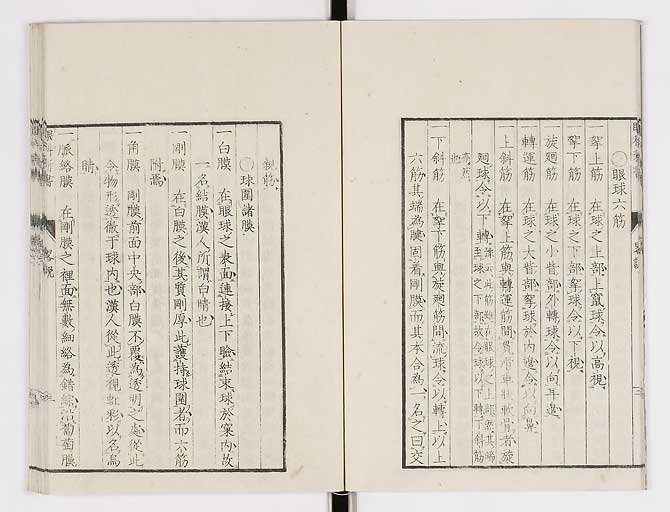 〇眼球六筋
一牽上筋 在球之上部上竄球令以高視
一牽下筋 在球之下部牽球令以下視
一旋廻筋 在球之小眥部外轉球令以向耳邊
一轉運筋 在球之大眥部牽球於內邊令以向鼻
一上斜筋 在牽上筋與轉運筋間貫帶車狀軟骨者旋
廻球令以下轉
也
一下斜筋 在牽下筋與旋廻筋間流球令以轉上以上
六筋其端為腱固着剛膜而其本合為一名之曰交
〇球圍諸膜
一白膜 在眼球之表面連接上下瞼結束球於窠內故
一名結膜漢人所謂白睛也
一剛膜 在白膜之後其質剛厚此護持球圍者而六筋
附焉
一角膜 剛膜前面中央部白膜不覆為透明之處從此
令物形透徹于球內也漢人從此透視虹彩以名烏
睛
一脈絡膜 在剛膜之裡面無數細絡為錯綜沿葡萄膜